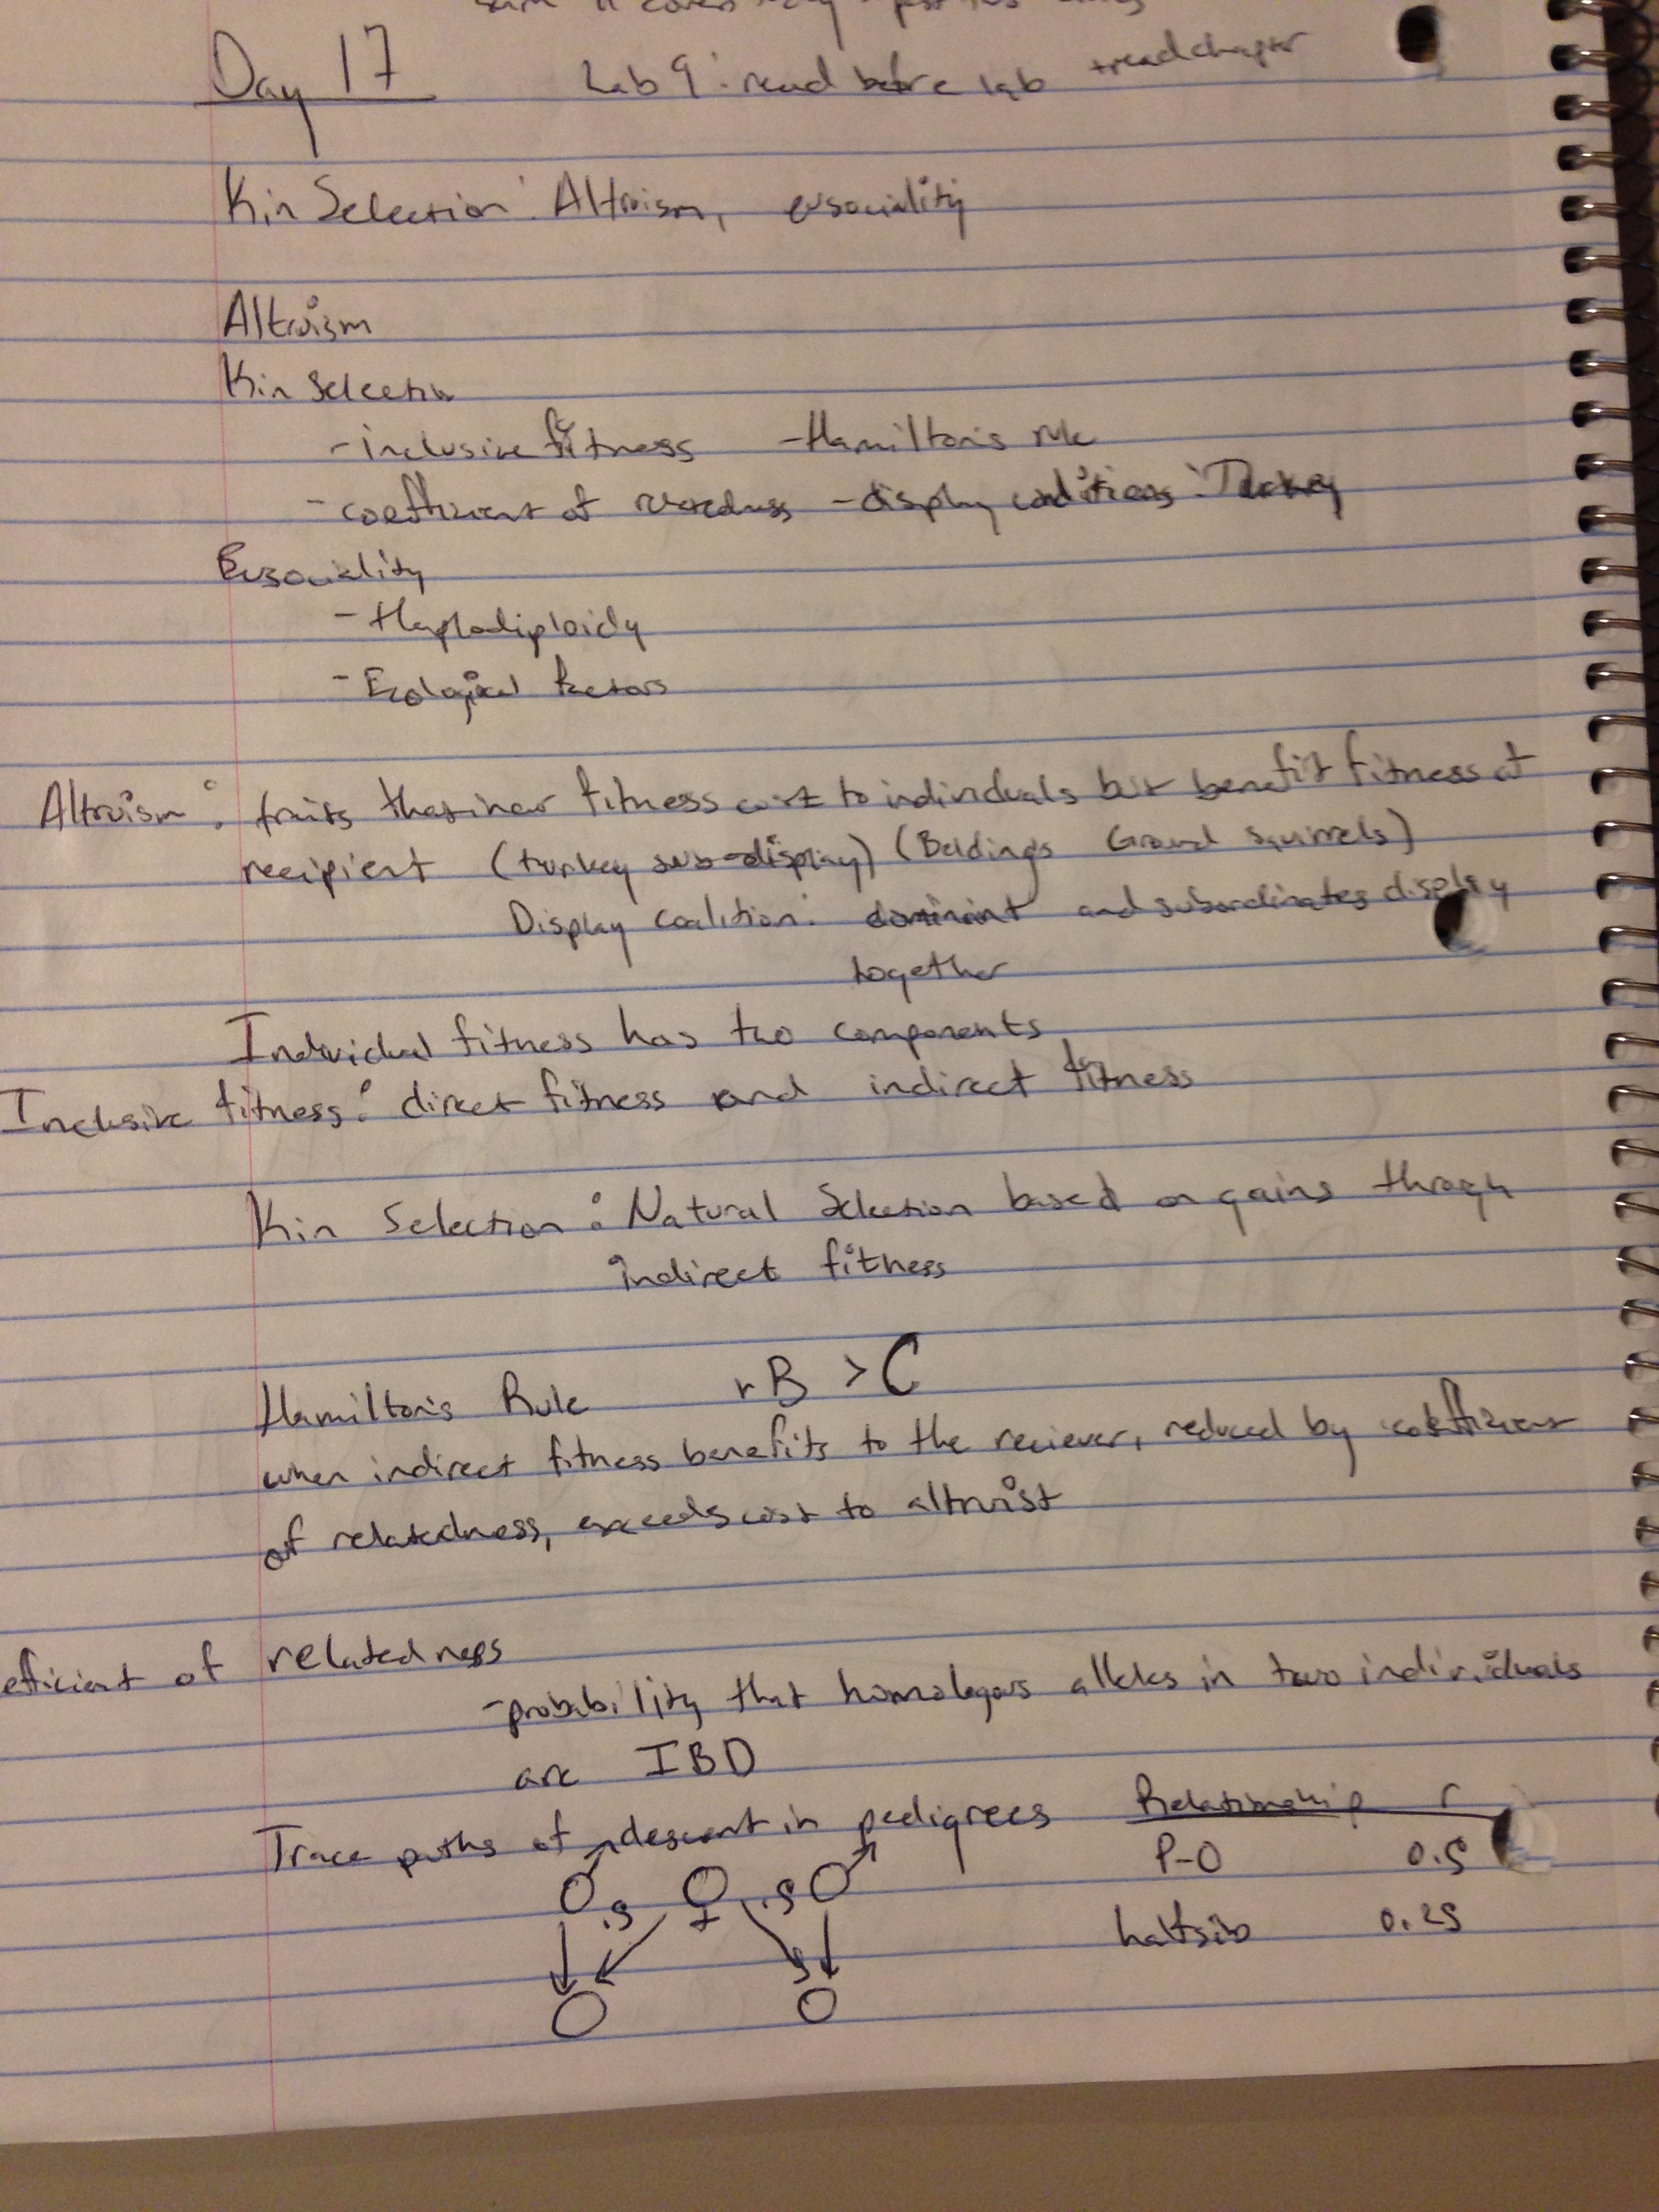 Day 17
Lab 9: read before lab + read chapter
Kin Selection: Altruism, eusociality
Altruism
Kin Selection
- inclusive fitness - Hamilton's rule
- coefficient of relatedness - display coalitions: Turkey
Eusociality
- Haplodiploidy
- Ecological factors
Altruism: traits that incur fitness cost to individuals but benefit fitness of
recipient (turkey sub-display) (Beldings Ground squirrels)
Display coalition: dominant and subordinates display
together
Individual fitness has two components
Inclusive fitness: direct fitness and indirect fitness
Kin Selection: Natural Selection based on gains through
indirect fitness
Hamilton's Rule rB > C
when indirect fitness benefits to the reciever, reduced by coefficient
of relatedness, exceeds cost to altruist
efficient of relatedness
- probability that homologous alleles in two individuals
are IBD
Trace paths of descent in pedigrees
Relationship r
P-O 0.5
halfsib 0.25
.5 .5